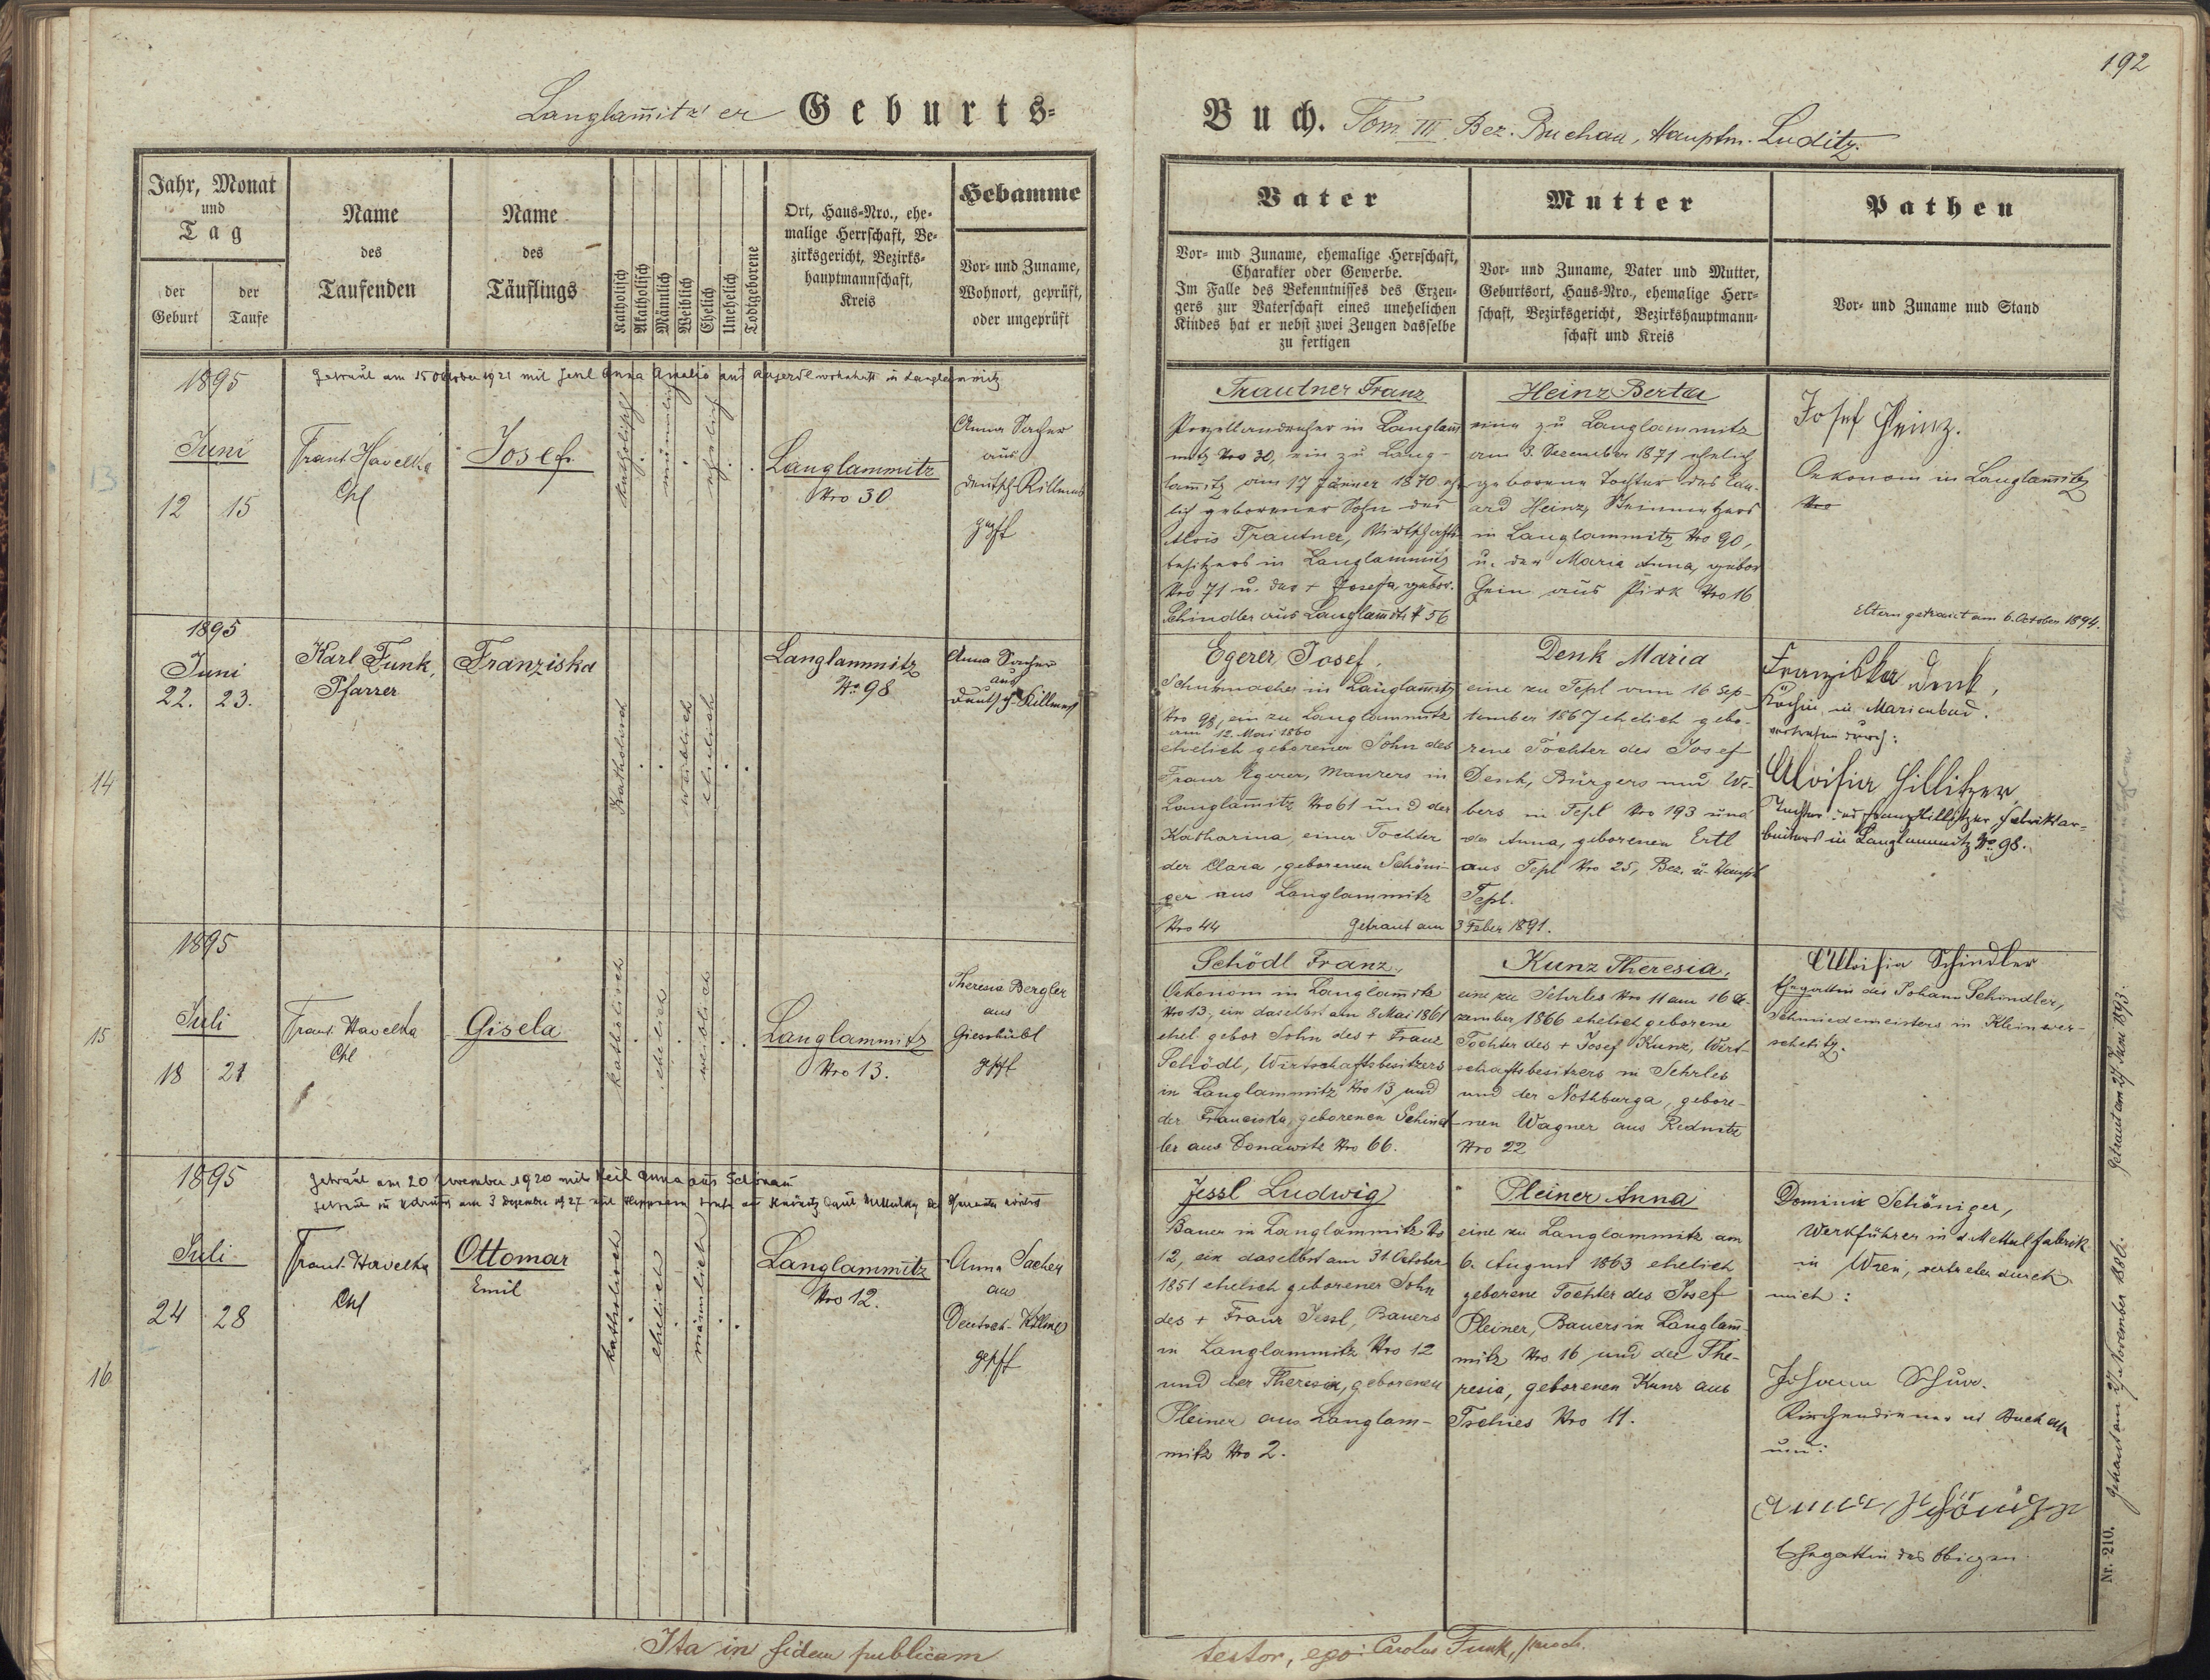 192
Langlam̅itz'er Geburts-
Buch. Tom III. Bez. Buchau, Hauptm. Luditz.
Jahr, Monat
und
Tag
der
Geburt
der
Taufe
Name
des
Taufenden
Name
des
Täuflings
Katholisch
Akatholisch
Männlich
Weiblich
Ehelich
Unehelich
Todtgeborene
Ort, Haus-Nro., ehe-
malige Herrschaft, Be-
zirksgericht, Bezirks-
hauptmannschaft,
Kreis
Hebamme
Vor- und Zuname,
Wohnort, geprüft,
oder ungeprüft
Vater
Vor- und Zuname, ehemalige Herrschaft,
Charakter oder Gewerbe.
Im Falle des Bekenntnisses des Erzeu-
gers zur Vaterschaft eines unehelichen
Kindes hat er nebst zwei Zeugen dasselbe
zu fertigen
Mutter
Vor- und Zuname, Vater und Mutter,
Geburtsort, Haus-Nro., ehemalige Herr-
schaft, Bezirksgericht, Bezirkshauptmann-
schaft und Kreis
Pathen
Vor- und Zuname und Stand
13
1895
Juni
12 15
Getraut am 15 October 1921 mit Jessl Anna Amalia aus wohnhaft in Langlammitz
Franz Havelka
Chl
Josef
katholisch
männlich
ehelich
Langlammitz
Nro 30
Anna Sacher
aus
Deutsch-Killmes
gepfft
Trautner Franz
Porzellandreher in Langlam̅
mitz Nro 30, ein zu Lang-
lam̅itz am 17 Jänner 1870 ehe-
lich geborener Sohn des
Alois Trautner, Wirtschafts-
besitzers in Langlammitz
Nro 71 u. der + Josefa, gebor.
Schindler aus Langlam̅itz # 56
Heinz Berta
eine zu Langlammitz
am 3. December 1871 ehelich
geborene Tochter des Edu-
ard Heinz, Steinmetzers
in Langlammitz Nro 90,
u. der Maria Anna, gebor
Hein aus Pirk Nro 16
Josef Heinz.
Oekonom in Langlam̅itz
Nro
Eltern getraut am 6. October 1894.
14
1895
Juni
22. 23.
Karl Funk,
Pfarrer
Franziska
Katholisch
weiblich
ehelich
Langlammitz
No 98
Anna Sacher
aus
Deutsch-Killmes
Egerer Josef,
Schuhmacher in Langlam̅itz
Nro 98, ein zu Langlammitz
am 12. Mai 1860
ehelich geborener Sohn des
Franz Egerer, Maurers in
Langlam̅itz Nro 61 und der
Katharina, einer Tochter
der Clara, geborenen Schöni-
ger aus Langlammitz
Nro 44 Getraut am 3 Feber 1891.
Denk Maria
eine zu Tepl am 16 Sep-
tember 1867 ehelich gebo-
rene Tochter des Josef
Denk, Bürgers und We-
bers in Tepl Nro 193 und
der Anna, geborenen Ertl
aus Tepl Nro 25, Bez. u. Haupt
Tepl.
Franziska Denk,
Köchin in Marienbad.
vertreten durch:
Aloisia Hillitzer,
Tochter des Franz Hillitzer, Fabriksar-
beiters in Langlammitz No 98.
15
1895
Juli
18 21
Franz Havelka
Chl
Gisela
katholisch
ehelich
weiblich
Langlammitz
Nro 13.
Theresia Bergler
aus
Gieshübl
gpfft
Schödl Franz,
Oekonom in Langlam̅itz
Nro 13, ein daselbst am 8 Mai 1861
ehel. gebor Sohn des + Franz
Schödl, Wirtschaftsbesitzers
in Langlammitz Nro 13 und
der Franciska, geborenen Schind-
ler aus Donawitz Nro 66.
Kunz Theresia,
eine zu Sehrles Nro 11 am 16 De-
zember 1866 ehelich geborene
Tochter des + Josef Kunz, Wirt-
schaftsbesitzers in Sehrles
und der Nothburga, gebore-
nen Wagner aus Rednitz
Nro 22
Aloisia Schindler
Ehegattin des Johann Schindler,
Schmiedemeisters in Kleinwer-
scheditz.
Getraut am 27 Juni 1893.
16
1895
Juli
24 28
Getraut am 20 November 1920 mit Keil Anna aus Schönau
Franz Havelka
Chl
Ottomar
Emil
katholisch
ehelich
männlich
Langlammitz
Nro 12.
Anna Sacher
aus
Deutsch-Killmes
gepfft
Jessl Ludwig
Bauer in Langlammitz No
12, ein daselbst am 31 October
1851 ehelich geborener Sohn
des + Franz Jessl, Bauers
in Langlammitz Nro 12
und der Theresia, geborenen
Pleiner aus Langlam-
mitz Nro 2.
Pleiner Anna
eine zu Langlammitz am
6. August 1863 ehelich
geborene Tochter des Josef
Pleiner, Bauers in Langlam̅-
mitz Nro 16 und der The-
resia, geborenen Kunz aus
Tschies Nro 11.
Dominik Schöniger,
Werkführer in d. Metallfabrik
in Wien, vertreten durch
mich:
Johann
Kirchendiener in Buchau
und:
Anna Schöniger
Ehegattin des Obigen
Getraut am 27 November 1886.
Nr. 210.
Ita in fidem publicam
testor, ego: Carolus Funk, paroch.